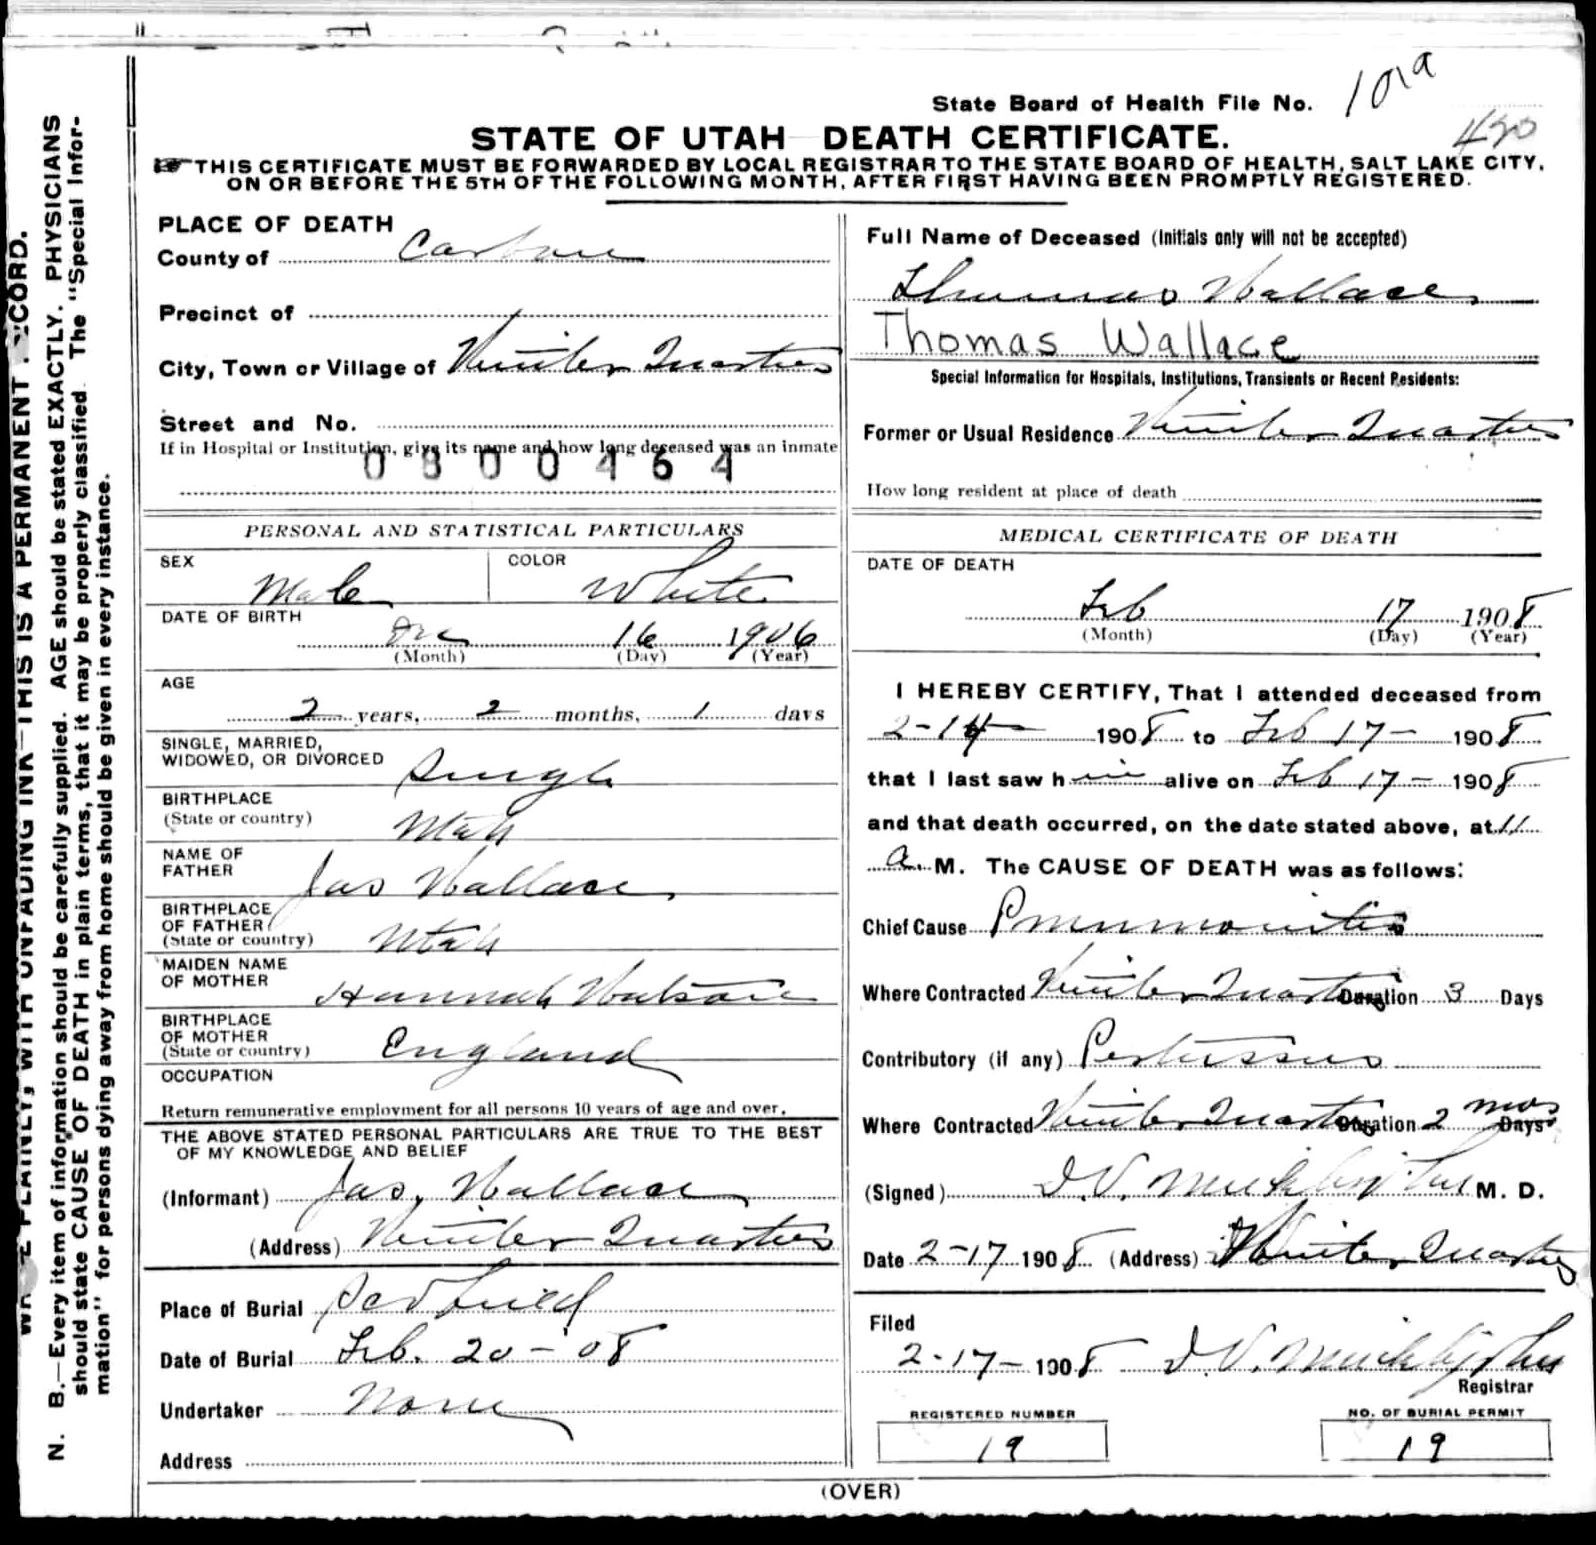 State Board of Health File No. 1019
420
STATE OF UTAH DEATH CERTIFICATE.
THIS CERTIFICATE MUST BE FORWARDED BY LOCAL REGISTRAR TO THE STATE BOARD OF HEALTH, SALT LAKE CITY,
ON OR BEFORE THE 5TH OF THE FOLLOWING MONTH, AFTER FIRST HAVING BEEN PROMPTLY REGISTERED.
N. B.—Every item of information should be carefully supplied. AGE should be stated EXACTLY. PHYSICIANS
should state CAUSE OF DEATH in plain terms, that it may be properly classified. The "Special Infor-
mation" for persons dying away from home should be given in every instance.
PLAINLY, WITH UNFADING INK—THIS IS A PERMANENT
PLACE OF DEATH
County of Carbon
Precinct of
City, Town or Village of Winter Quarters
Street and No.
If in Hospital or Institution, give its name and how long deceased was an inmate
0800464
PERSONAL AND STATISTICAL PARTICULARS
SEX Male COLOR White
DATE OF BIRTH
Dec 16 1906
(Month) (Day) (Year)
AGE
2 years, 2 months, 1 days
SINGLE, MARRIED,
WIDOWED, OR DIVORCED Single
BIRTHPLACE
(State or country) Utah
NAME OF
FATHER Jas Wallace
BIRTHPLACE
OF FATHER
(State or country) Utah
MAIDEN NAME
OF MOTHER Hannah Watson
BIRTHPLACE
OF MOTHER
(State or country) England
OCCUPATION
Return remunerative employment for all persons 10 years of age and over.
THE ABOVE STATED PERSONAL PARTICULARS ARE TRUE TO THE BEST
OF MY KNOWLEDGE AND BELIEF
(Informant) Jas. Wallace
(Address) Winter Quarters
Place of Burial Scofield
Date of Burial Feb. 20-'08
Undertaker None
Address
Full Name of Deceased (Initials only will not be accepted)
Thomas Wallace
Thomas Wallace
Special Information for Hospitals, Institutions, Transients or Recent Residents:
Former or Usual Residence Winter Quarters
How long resident at place of death
MEDICAL CERTIFICATE OF DEATH
DATE OF DEATH
Feb 17 1908
(Month) (Day) (Year)
I HEREBY CERTIFY, That I attended deceased from
2-14- 1908 to Feb 17- 1908
that I last saw him alive on Feb 17- 1908
and that death occurred, on the date stated above, at 11
a. M. The CAUSE OF DEATH was as follows:
Chief Cause Pneumonitis
Where Contracted Winter Quarters Duration 3 Days
Contributory (if any) Pertussus
Where Contracted Winter Quarters Duration 2 mos Days
(Signed) M. D.
Date 2-17 1908 (Address) Winter Quarters
Filed
2-17- 1908
Registrar
REGISTERED NUMBER
19
NO. OF BURIAL PERMIT
19
(OVER)